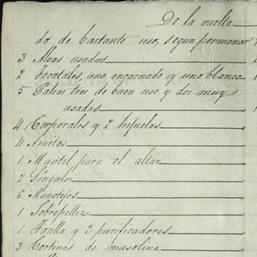 De la vuelta
da de bastante uso, segun pormenor
3 Alvas usadas
2 usados, uno encarnado y uno blanco
5 Palias tres de buen uso y dos muy
usadas
4 Corporales y 2 hijuelas
4 Amitos
1 Mantel para el altar
2 Singulos
6 Manotejos
1 Sobrepelliz
1 Toalla y 2 purificadores
3 Cortinas de muselina